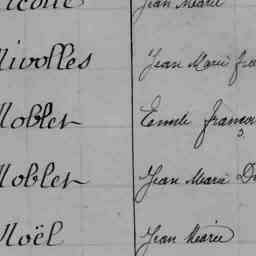 Jean Marie
Nivolles Jean Marie
Noblet Emile
Noblet Jean Marie
Noël Jean Marie